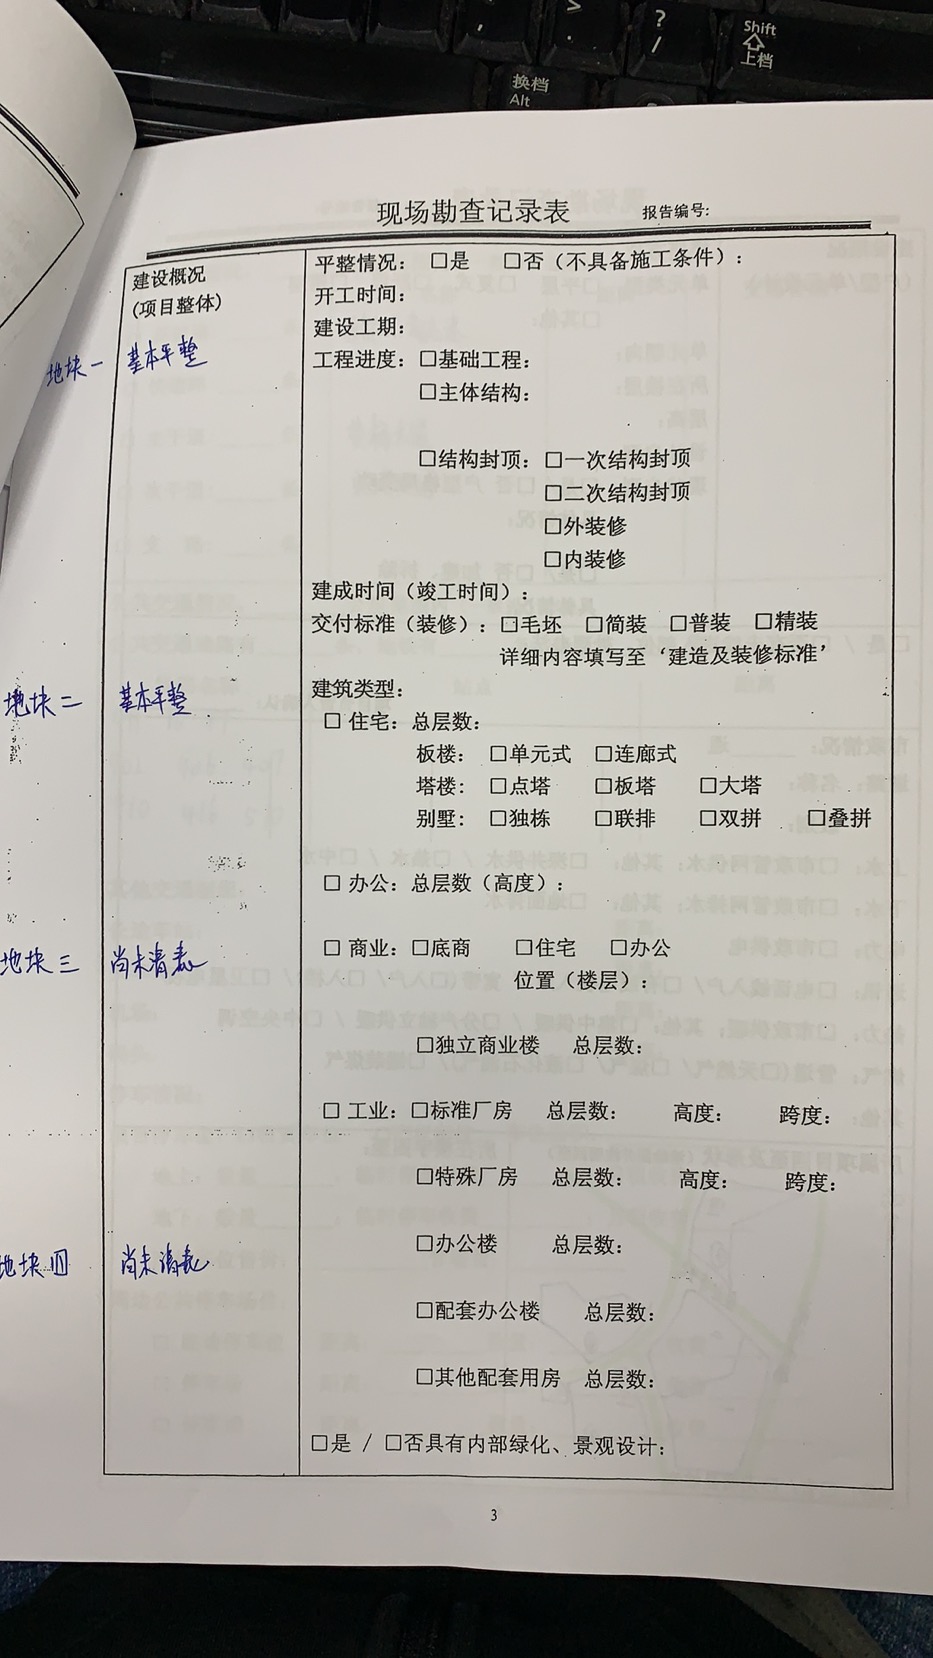 ?
/
Shift
上档
换档
Alt
现场勘查记录表 报告编号:
建设概况
(项目整体)
平整情况: □是 □否(不具备施工条件):
开工时间:
建设工期:
地块一 基本平整
工程进度: □基础工程:
□主体结构:
□结构封顶: □一次结构封顶
□二次结构封顶
□外装修
□内装修
建成时间(竣工时间):
交付标准(装修): □毛坯 □简装 □普装 □精装
详细内容填写至‘建造及装修标准’
地块二 基本平整
建筑类型:
□ 住宅: 总层数:
板楼: □单元式 □连廊式
塔楼: □点塔 □板塔 □大塔
别墅: □独栋 □联排 □双拼 □叠拼
□ 办公: 总层数(高度):
地块三 尚未清表
□ 商业: □底商 □住宅 □办公
位置(楼层):
□独立商业楼 总层数:
□ 工业: □标准厂房 总层数: 高度: 跨度:
□特殊厂房 总层数: 高度: 跨度:
地块四 尚未清表
□办公楼 总层数:
□配套办公楼 总层数:
□其他配套用房 总层数:
□是 / □否具有内部绿化、景观设计:
3